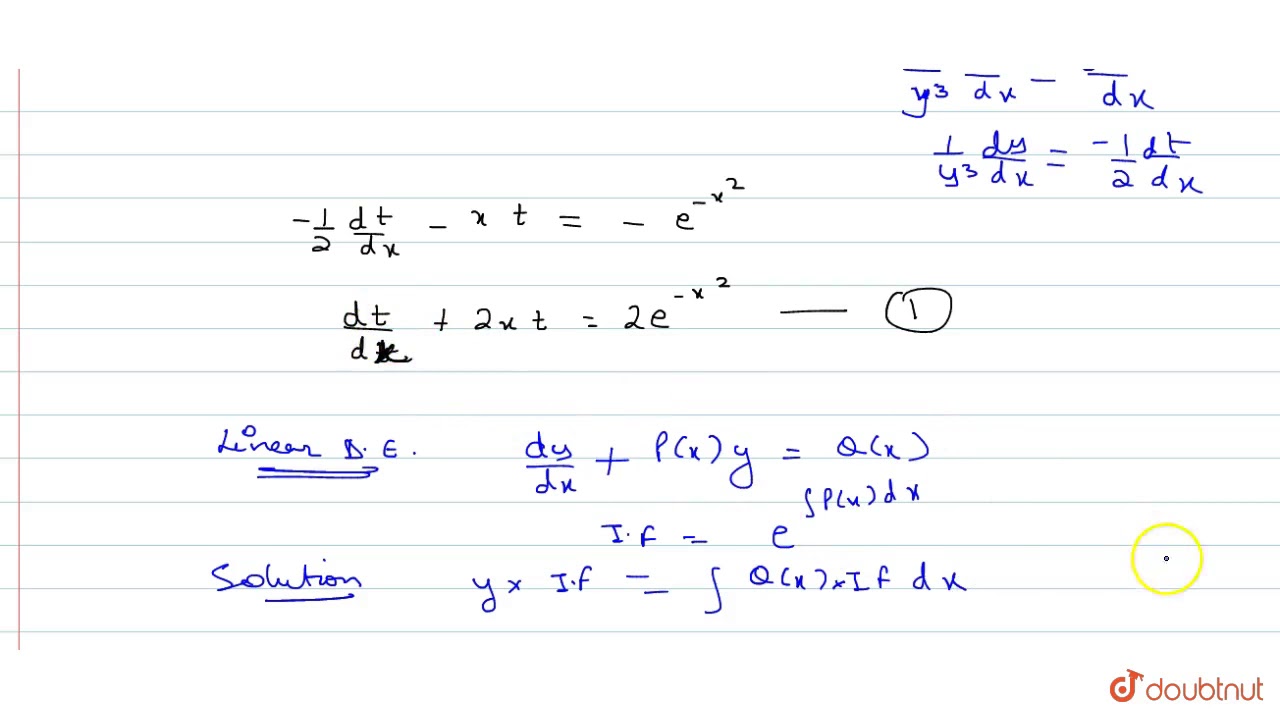 y³ dx - dx
1/y³ dy/dx = -1/2 dt/dx
-1/2 dt/dx - x t = - e^{-x^2}
dt/dx + 2xt = 2e^{-x^2} — ①
Linear D.E. dy/dx + P(x)y = Q(x)
I.f = e^{∫P(x)dx}
Solution y × I.f = ∫ Q(x)×If dx
doubtnut